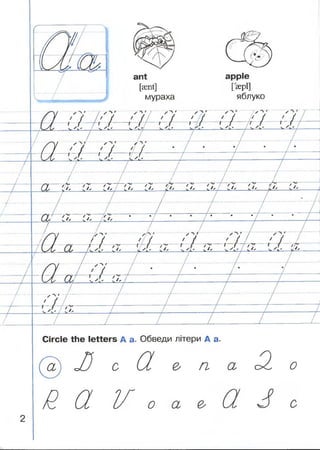 Aa
ant apple
[ænt] ['æpl]
мураха яблуко
a a a a a a a a a
a a a a
a a a a a a a a a a a a a
a a a a
a a a a a a a a a a
a a a a
a a
Circle the letters A a. Обведи літери A a.
a D c a e n a Q o
R a V o a e a S c
2